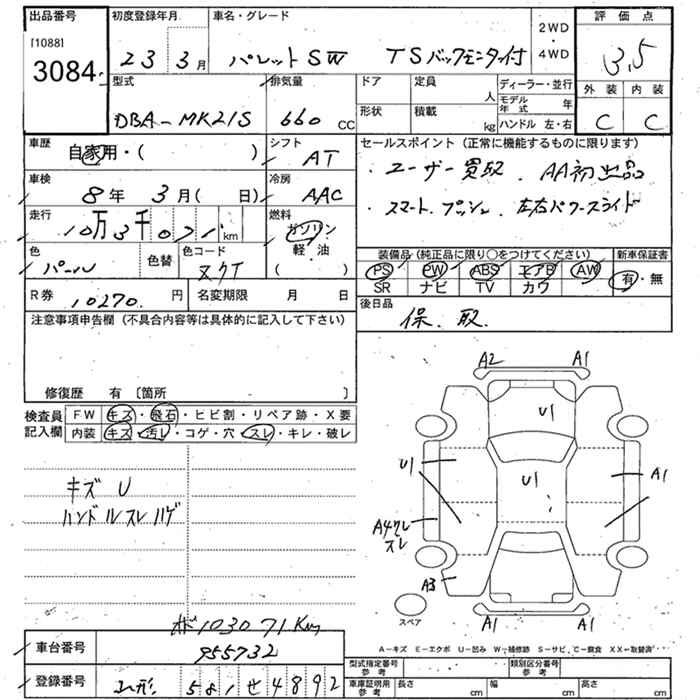 出品番号
[1088]
3084
初度登録年月
23 3月
車名・グレード
パレットSW TSバックモニター付
2WD・4WD
評価点
3.5
外装 内装
C C
型式
DBA-MK21S
排気量
660 CC
ドア
定員
人
形状
積載
kg
ディーラー・並行
モデル年式 年
ハンドル 左・右
車歴
自家用・( )
シフト
AT
車検
8年 3月( 日)
冷房
AAC
走行
10万3千071km
燃料
ガソリン
軽・油
( )
色
パール
色替
色コード
ZVT
R券 10270. 円
名変期限 月 日
セールスポイント(正常に機能するものに限ります)
・ユーザー買取.AA初出品
・スマート.プッシュ.左右パワースライド
装備品(純正品に限り○をつけてください)
新車保証書
PS PW ABS エアB AW
SR ナビ TV カワ
有・無
後日品
保.取.
注意事項申告欄(不具合内容等は具体的に記入して下さい)
修復歴 有 〔箇所 〕
検査員記入欄
FW キズ・飛石・ヒビ割・リペア跡・X要
内装 キズ・汚レ・コゲ・穴・スレ・キレ・破レ
キズ U
ハンドルスレハゲ
A2 A1
U1
U1 U1 A1
A4クレ
スレ
A3
A1 A1
スペア
A-キズ E-エクボ U-凹み W-補修跡 S-サビ C-腐食 XX-取替済
103071Km
車台番号
955732
登録番号
山形 581 せ 4892
型式指定番号
参考
類別区分番号
参考
車庫証明用
参考
長さ cm
幅 cm
高さ cm